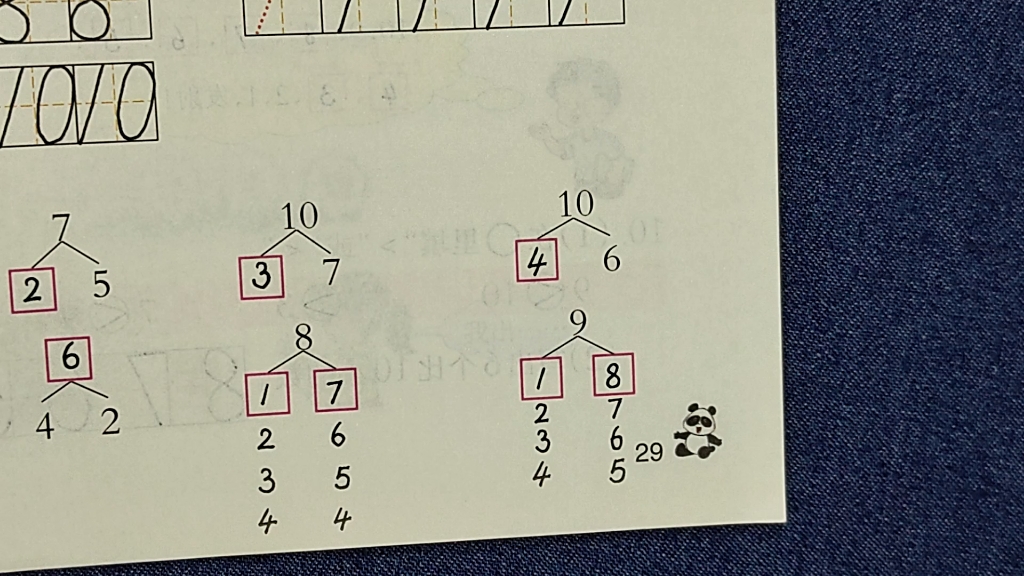 1010
7 10 10
2 5 3 7 4 6
6 8 9
4 2 1 7 1 8
2 6 2 7
3 5 3 6
4 4 4 5
29